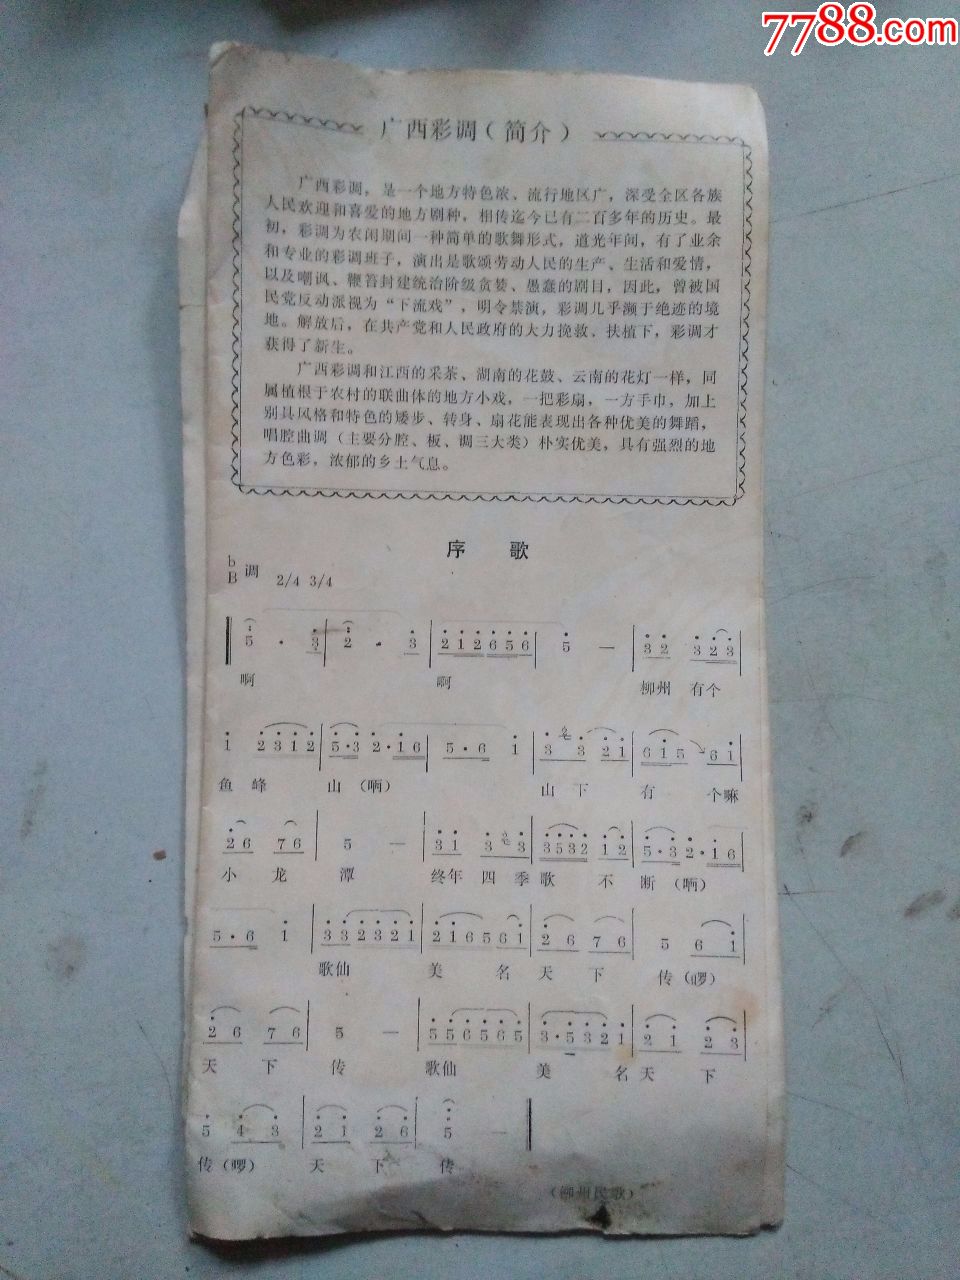 7788.com
广西彩调（简介）
广西彩调，是一个地方特色浓、流行地区广，深受全区各族
人民欢迎和喜爱的地方剧种，相传迄今已有二百多年的历史。最
初，彩调为农闲期间一种简单的歌舞形式，道光年间，有了业余
和专业的彩调班子，演出是歌颂劳动人民的生产、生活和爱情，
以及嘲讽、鞭笞封建统治阶级贪婪、愚蠢的剧目，因此，曾被国
民党反动派视为“下流戏”，明令禁演，彩调几乎濒于绝迹的境
地。解放后，在共产党和人民政府的大力挽救、扶植下，彩调才
获得了新生。
广西彩调和江西的采茶、湖南的花鼓、云南的花灯一样，同
属植根于农村的联曲体的地方小戏，一把彩扇，一方手巾，加上
别具风格和特色的矮步、转身、扇花能表现出各种优美的舞蹈，
唱腔曲调（主要分腔、板、调三大类）朴实优美，具有强烈的地
方色彩，浓郁的乡土气息。
序 歌
bB调 2/4 3/4
5 · 3 | 2 · 3 | 2 1 2 6 5 6 | 5 — | 3 2 3 2 3 |
啊 啊 柳州 有个
1 2 3 1 2 | 5 · 3 2 · 1 6 | 5 · 6 1 | 3 3 2 1 | 6 1 5 6 1 |
鱼 峰 山（啊） 山 下 有 个嘛
2 6 7 6 | 5 — | 3 1 3 3 | 3 5 3 2 1 2 | 5 · 3 2 · 1 6 |
小 龙 潭 终年 四 季 歌 不 断（啊）
5 · 6 1 | 3 3 2 3 2 1 | 2 1 6 5 6 1 | 2 6 7 6 | 5 6 1 |
歌仙 美 名 天 下 传（啰）
2 6 7 6 | 5 — | 5 5 6 5 6 5 | 3 · 5 3 2 1 | 2 1 2 3 |
天 下 传 歌仙 美 名 天 下
5 4 3 | 2 1 2 6 | 5 —
传（啰） 天 下 传
（柳州民歌）